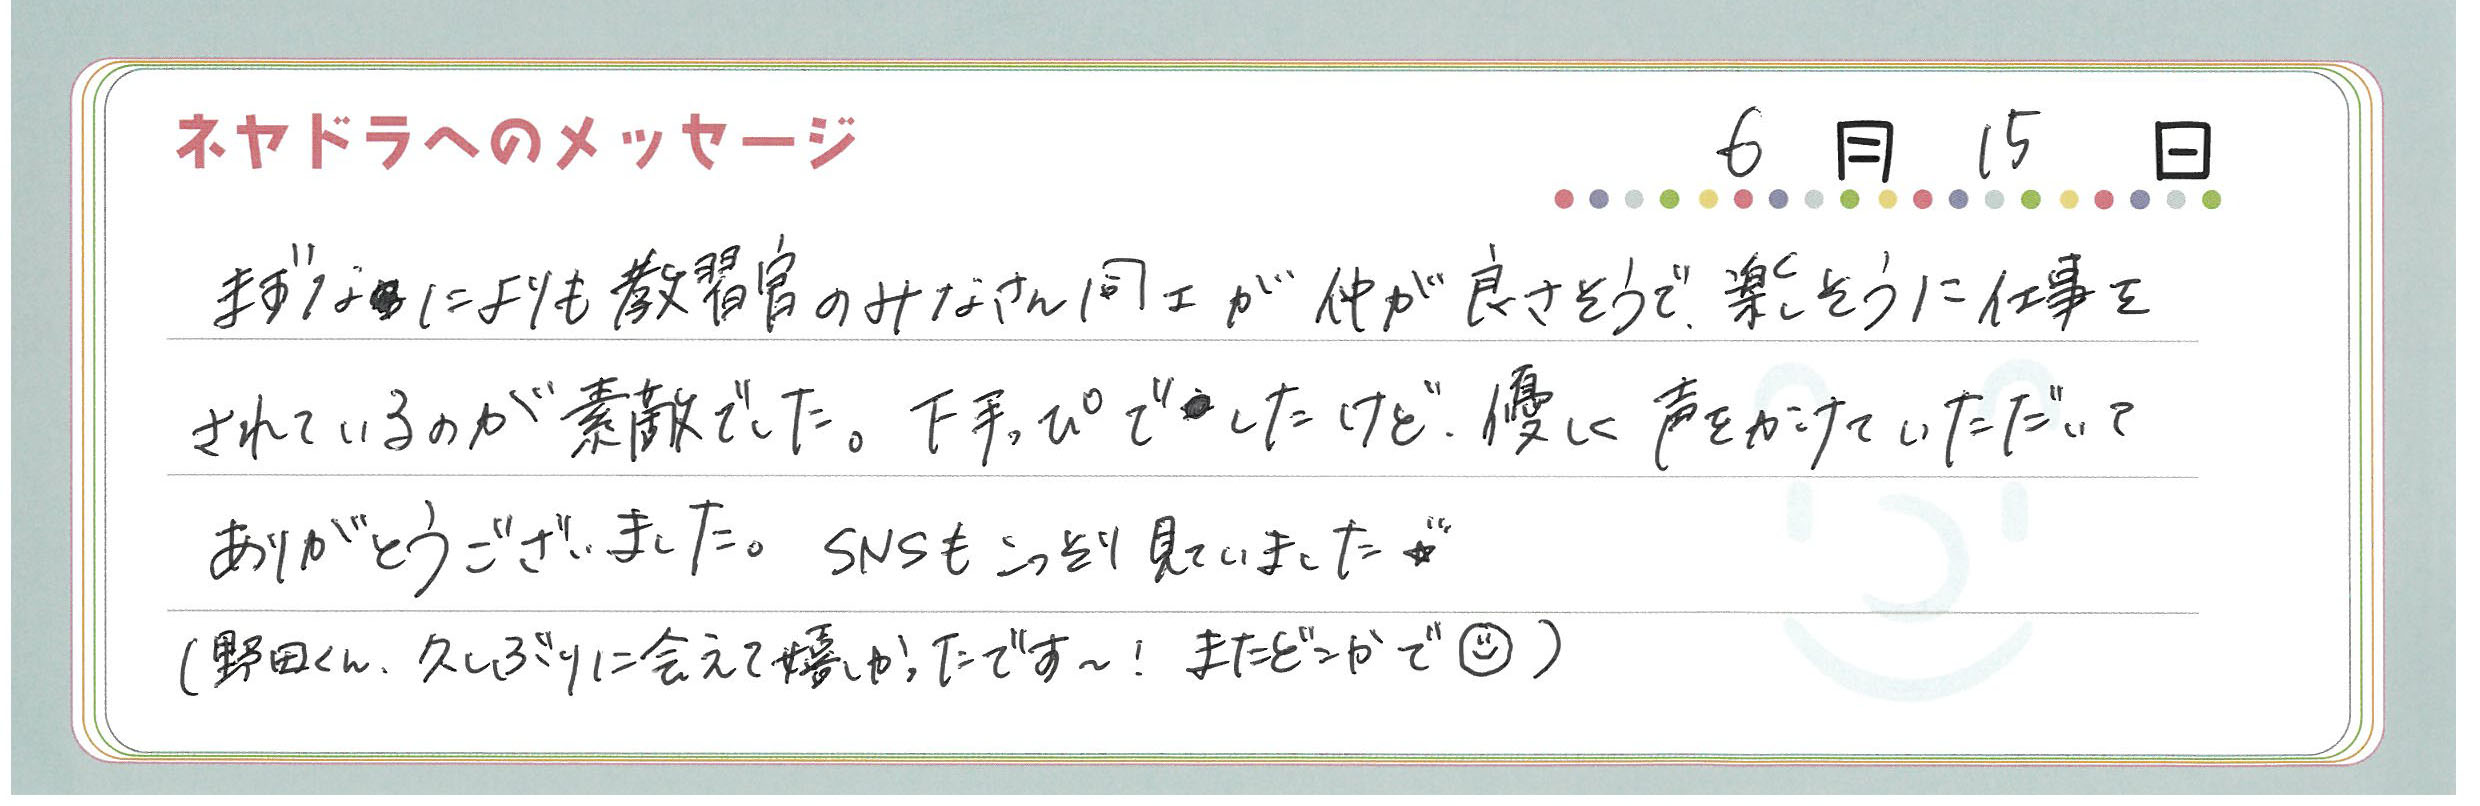 ネヤドラへのメッセージ
6月15日
まずなによりも教習官のみなさん同士が仲が良さそうで、楽しそうに仕事を
されているのが素敵でした。下手っぴでしたけど、優しく声をかけていただいて
ありがとうございました。SNSもこっそり見ていました☆
(野田くん、久しぶりに会えて嬉しかったです～！またどこかで☺)